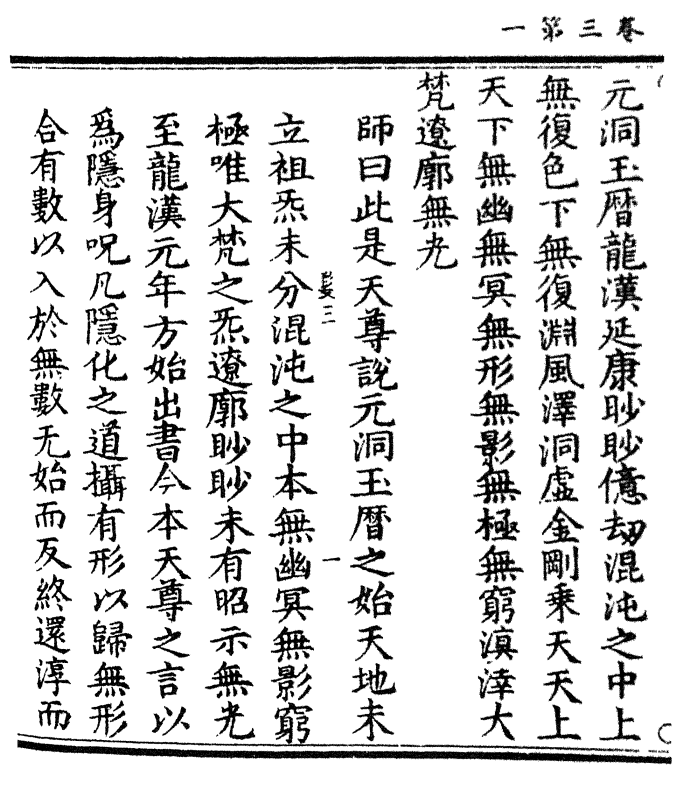 卷三第一
元洞玉曆龍漢延康眇眇億劫混沌之中上
無復色下無復淵風澤洞虛金剛乘天天上
天下無幽無冥無形無影無極無窮溟涬大
梵遼廓無光
師曰此是天尊說元洞玉曆之始天地未
立祖炁未分混沌之中本無幽冥無影窮
極唯大梵之炁遼廓眇眇未有昭示無光
至龍漢元年方始出書今本天尊之言以
爲隱身呪凡隱化之道攝有形以歸無形
合有數以入於無數无始而反終還淳而
髮三
一